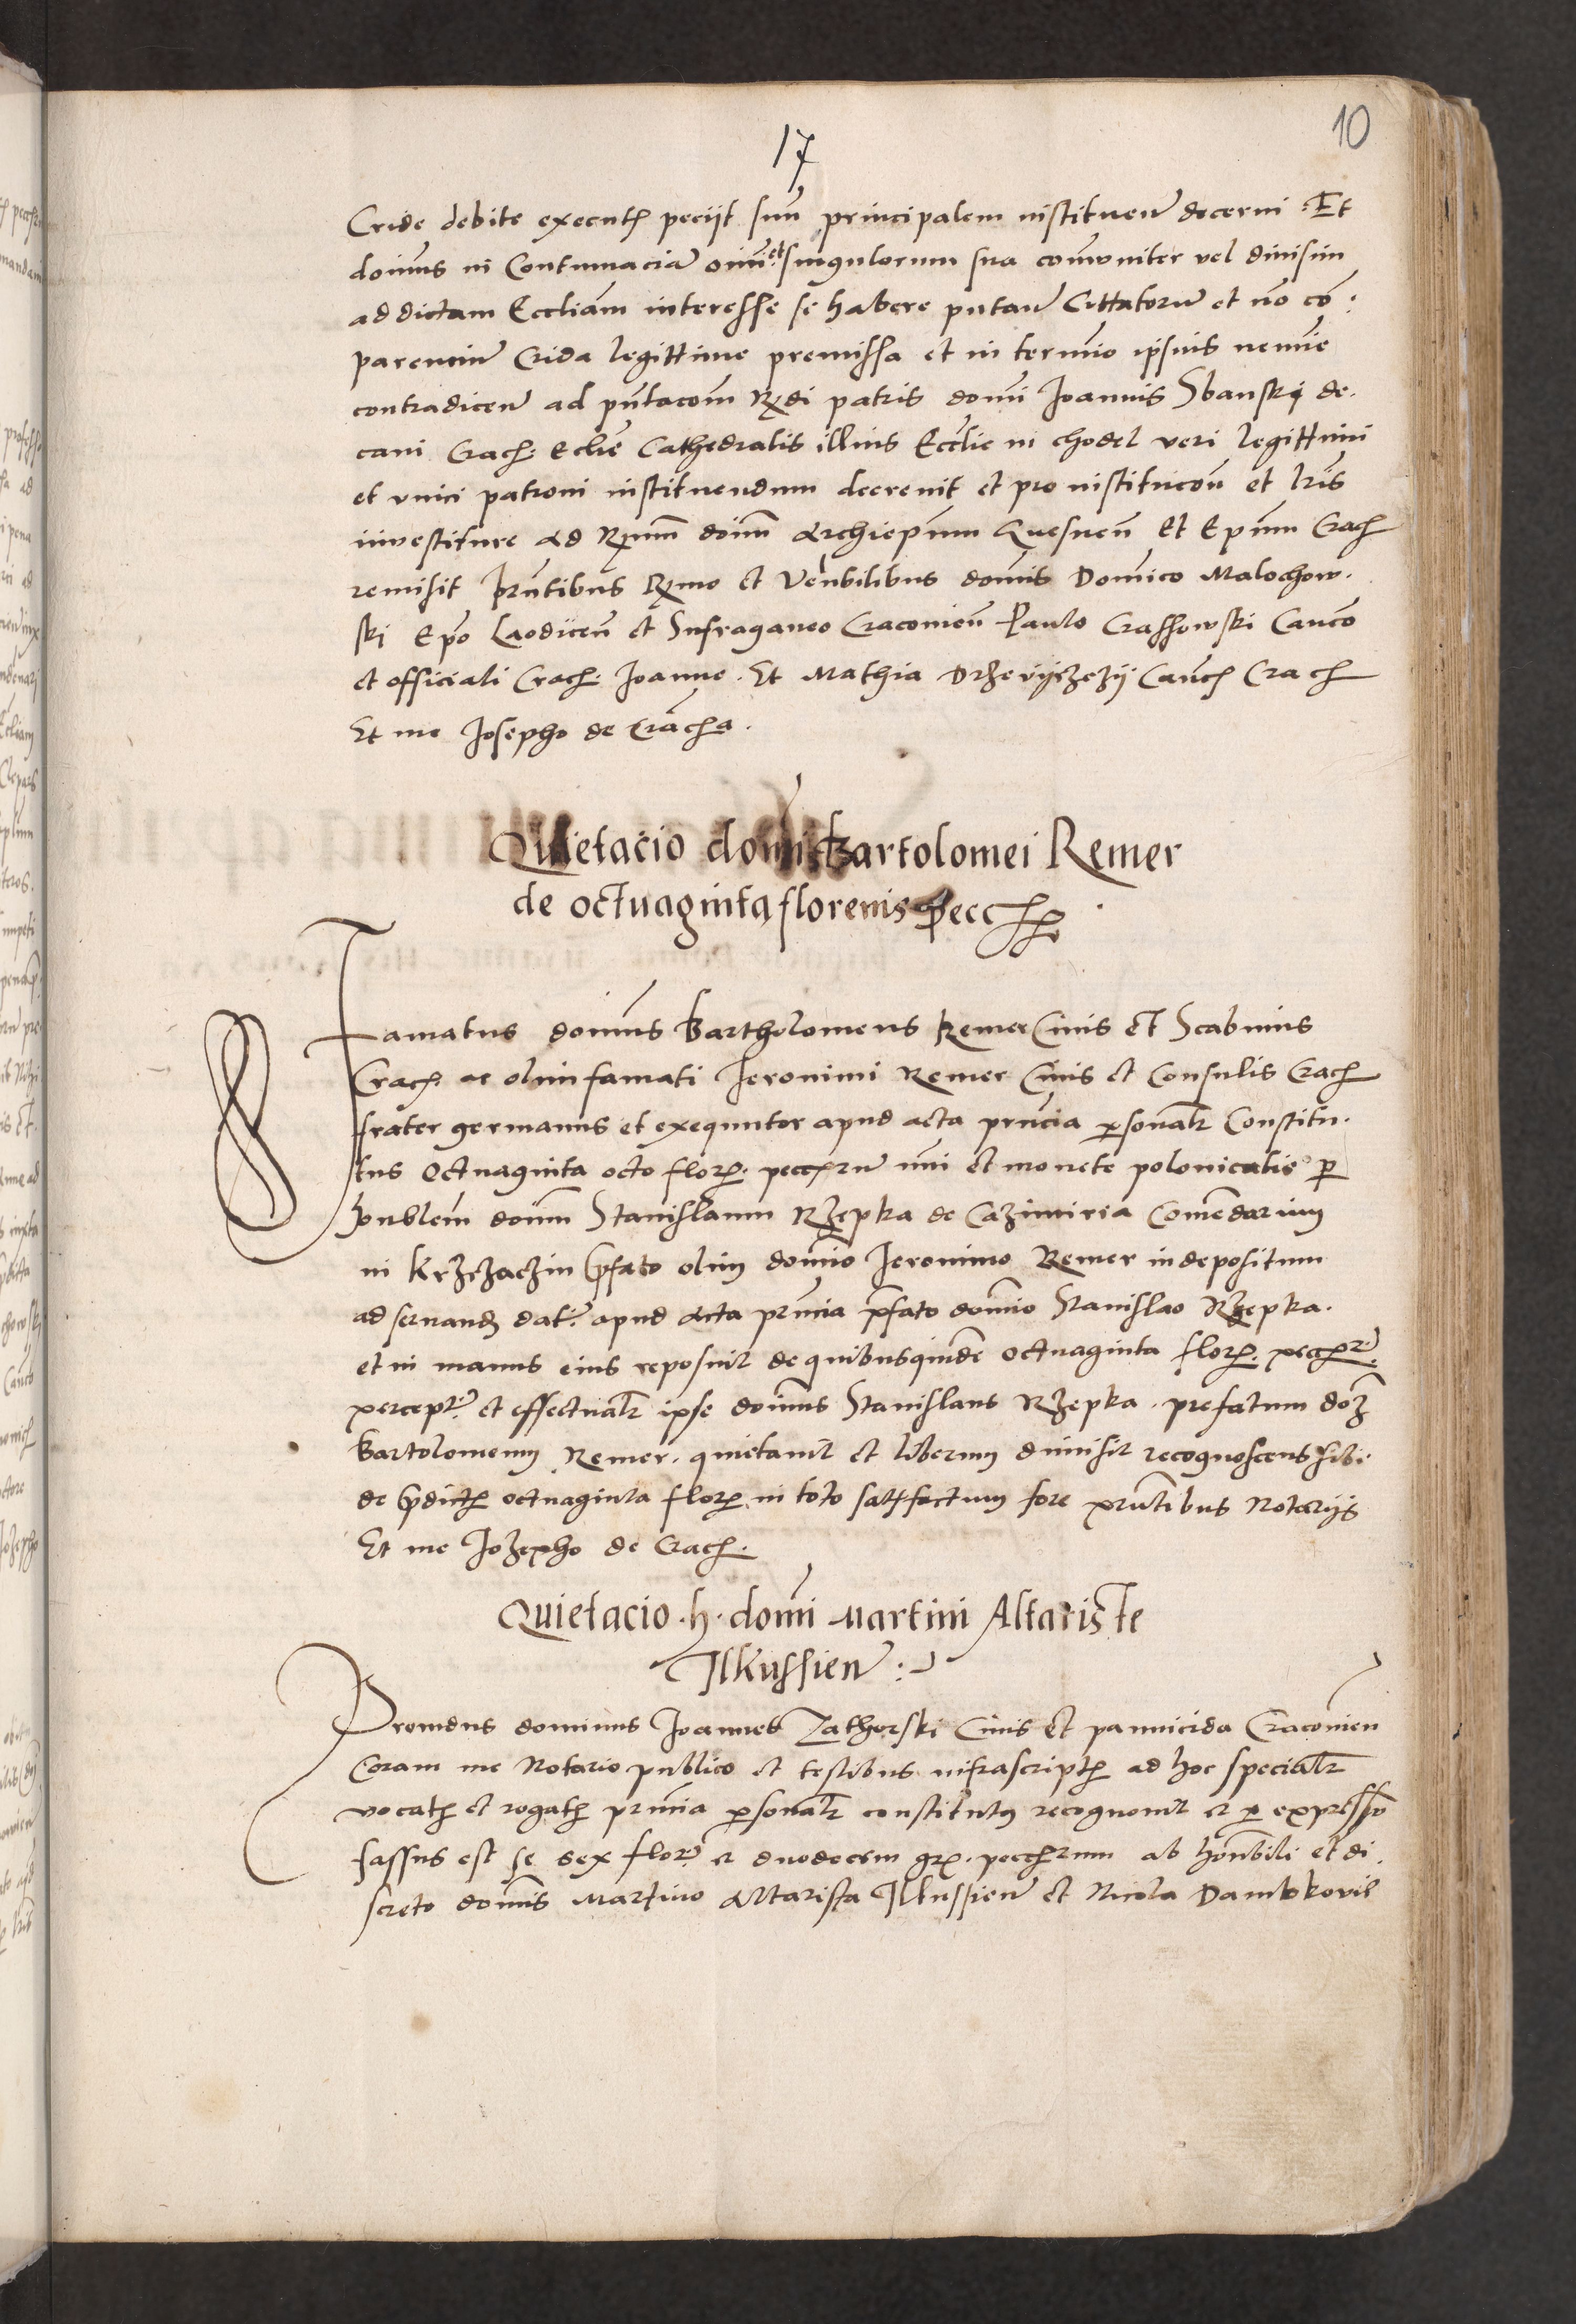 10
17
Cride debite executis peciit suum principalem instituen decerni . Et
dominus in Contumaciam omni et singulorum sua comuniter vel divisim
ad dictam Eccliam interesse se habere putan Cittatorum et no co:
parencium Crida legittime premissa et in termino ipsius nemine
contradicen ad pntacom Rndi patris domini Joannis Sbanski de.
cani Crach. Eclie Cathedralis illius Ecclie in Chodel veri legittimi
et vnici patroni instituendum decrevit et pro institucon et lris
investiture ad Rmum domi Archiepum Gnesnen Et Epum Crach
remisit prntibus Rmo et Venbilibus domis Dominico Malochow.
ski Epo Laodicen et Sufraganeo Cracovien Paulo Crassowski Canco
et officiali Crach. Joanne . Et Mathia Drzeviiczczij Canch Crach
Et me Josepho de Cracha .
Quietacio domi Bartolomei Remer
de octuaginta florenis pecch
Famatus domius Bartholomeus Remer Civis et Scabinus
Crach. ac olim famati Jeronimi Remer Civis et Consulis Crach
frater germanus et exequutor apud acta prncia personalr Constitu.
tus Octuaginta octo flor. pecc mni et monete polonicalis per
honblem domi Stanislaum Rzepka de Cazimiria Comendarium
in Krzczaczin pfato olim domino Jeronimo Remer in depositum
ad servand dat. apud acta prncia pfato domino Stanislao Rzepka.
et in manus eius reposuit de quibusquidem octuaginta flor.
percept. et effectualr ipse dominus Stanislaus Rzepka . prefatum dom
Bartolomeum Remer . quietavit et liberum dimisit recognoscens sibi.
de pdictis octuaginta flor in toto satisfactum fore prntibus Notariis
Et me Jozepho de Crach.
Quietacio . h . domi Martini Altariste
Ilkussien :
Providus dominus Joannes Zathorski Civis et pannicida Cracovien
Coram me Notario publico et testibus infrascriptis ad hoc specialr
vocatis et rogatis prncia personalr constitutus recognovit et per expressum
fassus est se sex flor et duodecim gr. ab honbili et di
screto domis Martino Altarista Ilkussien et Nicola Dambkovis